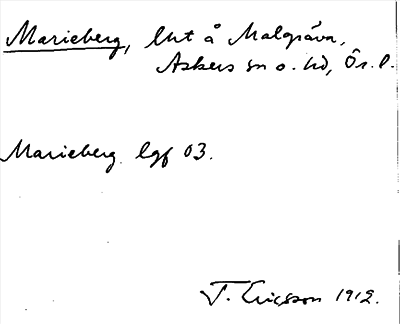 Marieberg, lht å Malgräva,
Askers sn o. hd, Ör. l.
Marieberg lgf 03.
T. Ericsson 1912.